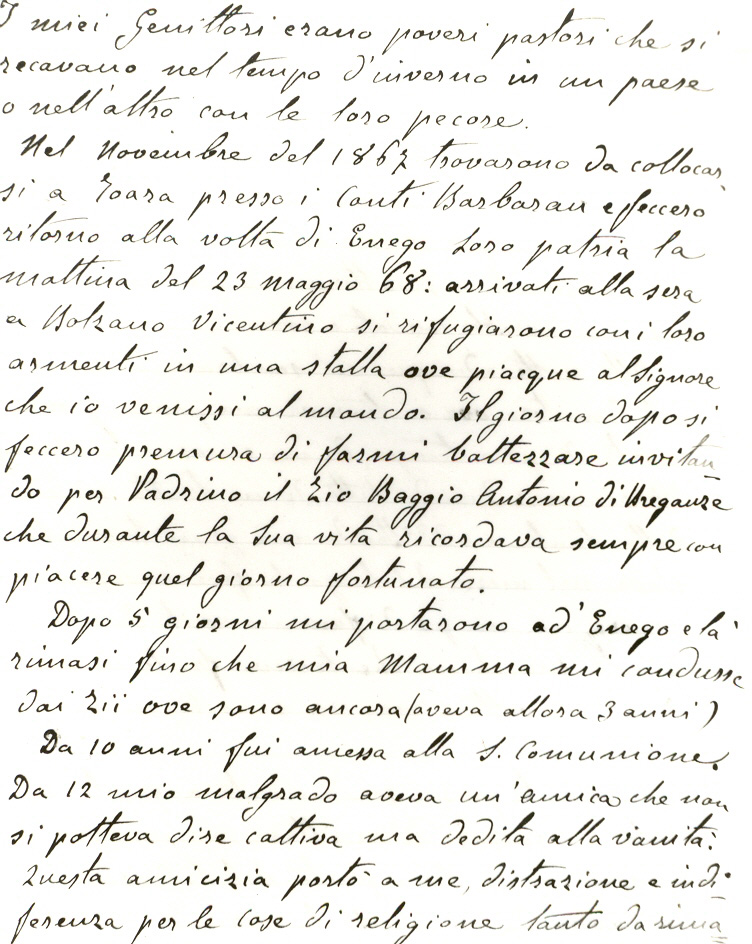 I miei Genittori erano poveri pastori che si
recavano nel tempo d'inverno in un paese
o nell'altro con le loro pecore.
Nel Novembre del 1867 trovarono da collocar
si a Toara presso i Conti Barbaran e feccero
ritorno alla volta di Enego loro patria la
mattina del 23 maggio 68: arrivati alla sera
a Bolzano Vicentino si rifugiarono con i loro
armenti in una stalla ove piacque al Signore
che io venissi al mondo. Il giorno dopo si
feccero premura di farmi battezzare invitan=
do per Padrino il Zio Baggio Antonio di Ureganze
che durante la sua vita ricordava sempre con
piacere quel giorno fortunato.
Dopo 5 giorni mi portarono ad' Enego e là
rimasi fino che mia Mamma mi condusse
dai Zii ove sono ancora (aveva allora 3 anni)
Da 10 anni fui amessa alla S. Comunione.
Da 12 mio malgrado aveva un'amica che non
si potteva dire cattiva ma dedita alla vanità:
Questa amicizia portò a me, distrazione e indi=
ferenza per le cose di religione tanto da rima=